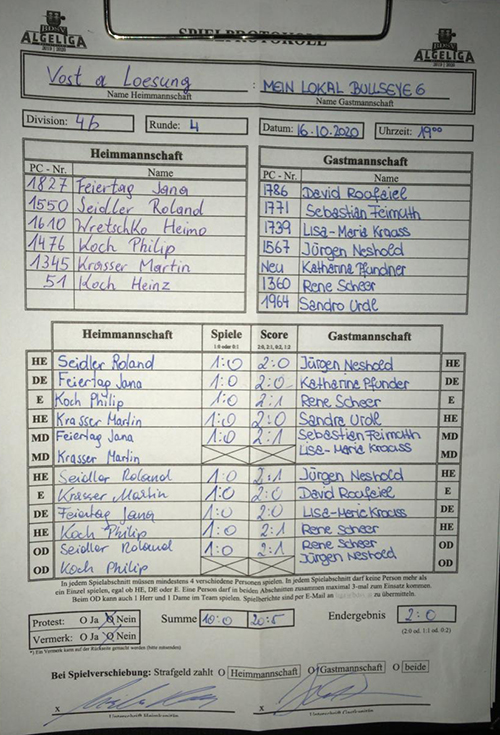 ALGELIGA
2019 | 2020
SPIELPROTOKOLL
ALGELIGA
2019 | 2020
Vost a Loesung : MEIN LOKAL BULLSEYE 6
Name Heimmannschaft Name Gastmannschaft
Division: 4b Runde: 4 Datum: 16.10.2020 Uhrzeit: 19⁰⁰
Heimmannschaft Gastmannschaft
PC - Nr. Name PC - Nr. Name
1827 Feiertag Jana 1786 David Roafaiel
1550 Seidler Roland 1771 Sebastian Feimuth
1610 Wretschko Heimo 1739 Lisa-Maria Kraass
1476 Koch Philip 1567 Jürgen Neshold
1345 Krasser Martin Neu Katharina Pfundner
51 Koch Heinz 1360 Rene Scheer
1964 Sandro Urdl
Heimmannschaft Spiele Score Gastmannschaft
1:0 oder 0:1 2:0, 2:1, 0:2, 1:2
HE Seidler Roland 1:0 2:0 Jürgen Neshold HE
DE Feiertag Jana 1:0 2:0 Katharina Pfunder DE
E Koch Philip 1:0 2:1 Rene Scheer E
HE Krasser Martin 1:0 2:0 Sandra Urdl HE
MD Feiertag Jana 1:0 2:1 Sebastian Feimuth MD
MD Krasser Martin Lisa-Maria Kraass MD
HE Seidler Roland 1:0 2:1 Jürgen Neshold HE
E Krasser Martin 1:0 2:0 David Roafaiel E
DE Feiertag Jana 1:0 2:0 Lisa-Maria Kraass DE
HE Koch Philip 1:0 2:1 Rene Scheer HE
OD Seidler Roland 1:0 2:1 Rene Scheer OD
OD Koch Philip Jürgen Neshold OD
In jedem Spielabschnitt müssen mindestens 4 verschiedene Personen spielen. In jedem Spielabschnitt darf keine Person mehr als
ein Einzel spielen, egal ob HE, DE oder E. Eine Person darf in beiden Abschnitten zusammen maximal 3-mal zum Einsatz kommen.
Beim OD kann auch 1 Herr und 1 Dame im Team spielen. Spielberichte sind per E-Mail an zu übermitteln.
Protest: O Ja O Nein Summe 10:0 20:5 Endergebnis 2:0
Vermerk: O Ja O Nein (2:0 od. 1:1 od. 0:2)
*) Ein Vermerk kann auf der Rückseite gemacht werden (bitte ankreuzen)
Bei Spielverschiebung: Strafgeld zahlt O Heimmannschaft O Gastmannschaft O beide
x x
Unterschrift Heimkapitän Unterschrift Gastkapitän